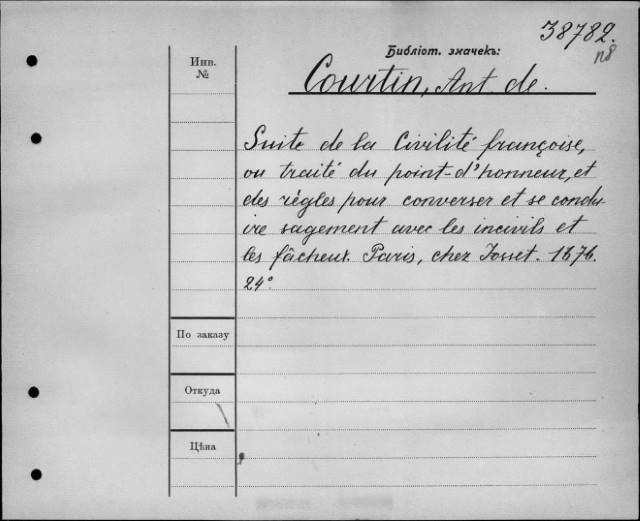 38782.
Библіот. значекъ:
Инв.
№
Courtin, Ant. de.
Suite de la Civilité françoise,
ou traité du point-d'honneur, et
des règles pour converser et se condu-
ire sagement avec les incivils et
les fâcheux. Paris, chez Josset. 1676.
24°
По заказу
Откуда
Цѣна